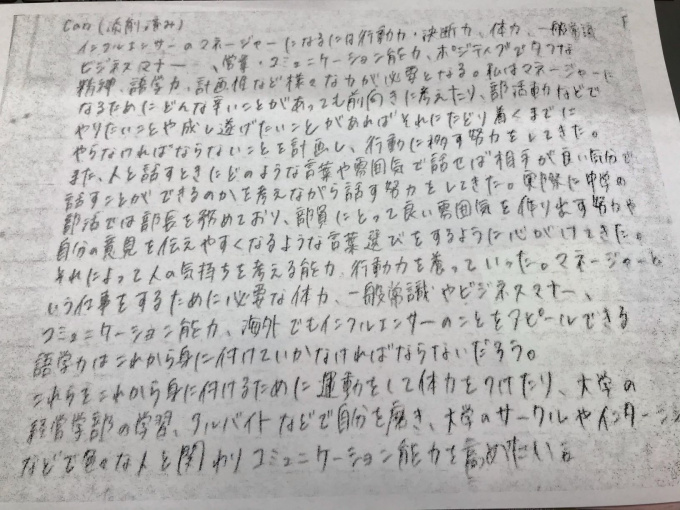 Can (添削済み)
インフルエンサーのマネージャーになるには行動力・決断力、体力、一般常識
ビジネスマナー、営業・コミュニケーション能力、ポジティブでタフな
精神、語学力、計画性など様々な力が必要となる。私はマネージャーに
なるためにどんな辛いことがあっても前向きに考えたり、部活動などで
やりたいことや成し遂げたいことがあればそれにたどり着くまでに
やらなければならないことを計画し、行動に移す努力をしてきた。
また、人と話すときにどのような言葉や雰囲気で話せば相手が良い気分で
話すことができるのかを考えながら話す努力をしてきた。実際に中学の
部活では部長を務めており、部員にとって良い雰囲気を作り出す努力や
自分の意見を伝えやすくなるような言葉選びをするように心がけてきた。
それによって人の気持ちを考える能力、行動力を養っていった。マネージャーと
いう仕事をするために必要な体力、一般常識やビジネスマナー、
コミュニケーション能力、海外でもインフルエンサーのことをアピールできる
語学力はこれから身に付けていかなければならないだろう。
これらをこれから身に付けるために運動をして体力をつけたり、大学の
経営学部の学習、アルバイトなどで自分を磨き、大学のサークルやインターン
などで色々な人と関わりコミュニケーション能力を高めたい。